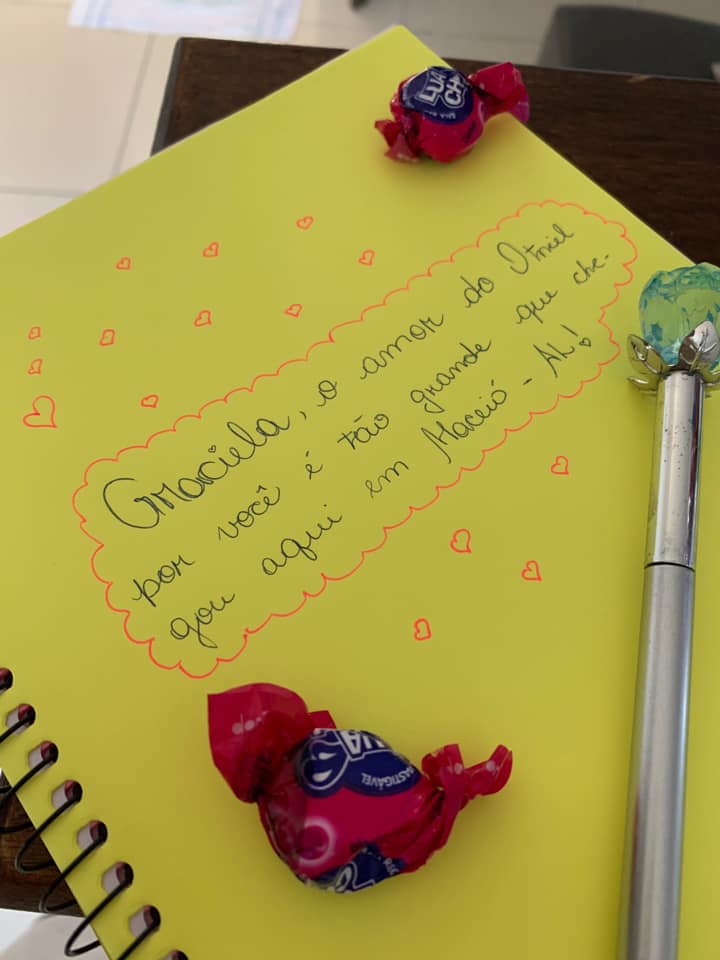 LUA
CH
Graciela, o amor do Otniel
por você é tão grande que che-
gou aqui em Maceió - AL!
UA
MASTIGÁVEL